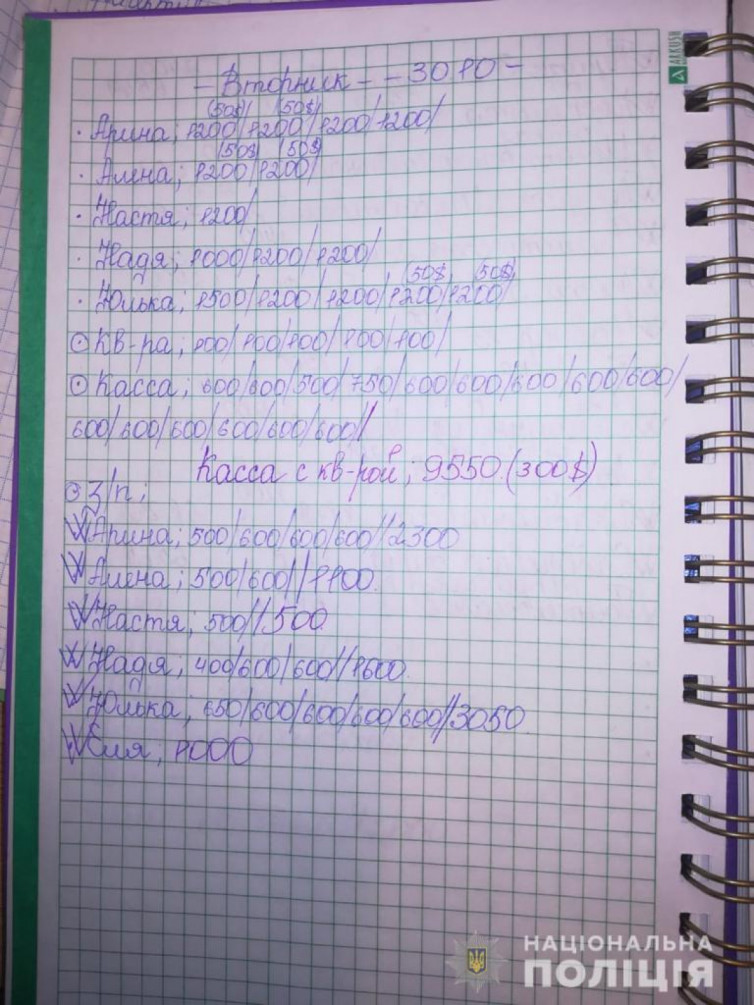 ARKUSH
- Вторник - - 30 10 -
(50$) (50$)
· Арина; 1200/1200/1200/1200/
(50$) (50$)
· Алена; 1200/1200/
· Настя; 1200/
· Надя; 1000/1200/1200/
(50$) (50$)
· Юлька; 1500/1200/1200/1200/1200/
КВ-ра; 100/100/100/100/100/
Касса; 600/600/500/750/600/600/600/600/600/
600/600/600/600/600/600//
Касса с кв-рой; 9550 (300$)
З/п;
Арина; 500/600/600/600//2300
Алена; 500/600//1100
Настя; 500//500
Надя; 400/600/600//1600
Юлька; 650/600/600/600/600//3050
Эля; 1000
НАЦІОНАЛЬНА
ПОЛІЦІЯ